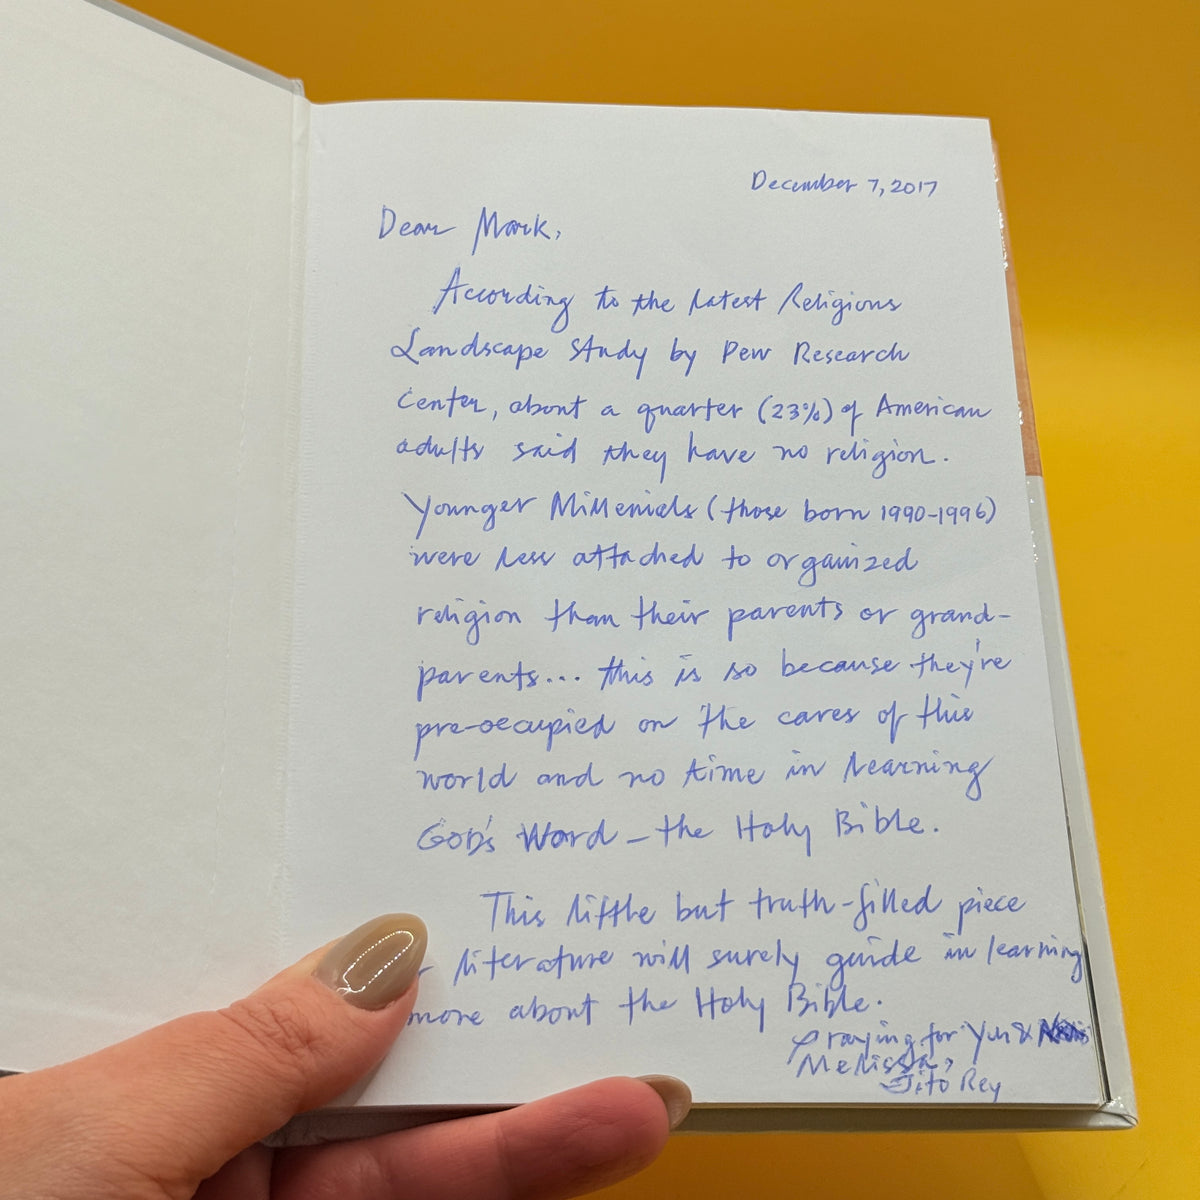 December 7, 2017
Dear Mark,
According to the latest Religious
Landscape Study by Pew Research
Center, about a quarter (23%) of American
adults said they have no religion.
Younger Millenials (those born 1990-1996)
were less attached to organized
religion than their parents or grand-
parents... this is so because they're
pre-occupied on the cares of this
world and no time in learning
God's Word – the Holy Bible.
This little but truth-filled piece
literature will surely guide in learning
more about the Holy Bible.
Praying for You &
Melissa,
Tito Rey